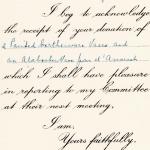 I beg to acknowledge
the receipt of your donation of
2 Painted Earthenware Vases and
an Alabaster Vase from el Amarah
which I shall have pleasure
in reporting to my Committee
at their next meeting.
I am,
Yours faithfully,